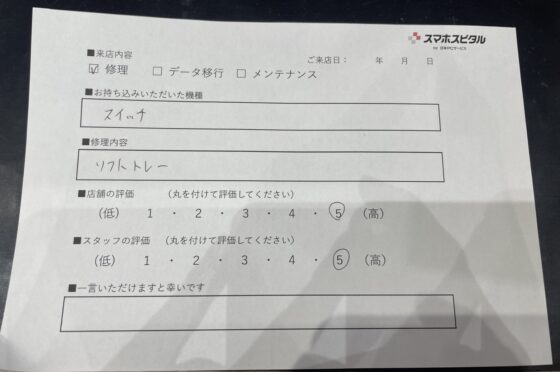 スマホスピタル
by 日本PCサービス
■来店内容
ご来店日： 年 月 日
☑ 修理 □ データ移行 □ メンテナンス
■お持ち込みいただいた機種
スイッチ
■修理内容
ソフトトレー
■店舗の評価 （丸を付けて評価してください）
（低） 1 ・ 2 ・ 3 ・ 4 ・ 5 （高）
■スタッフの評価 （丸を付けて評価してください）
（低） 1 ・ 2 ・ 3 ・ 4 ・ 5 （高）
■一言いただけますと幸いです